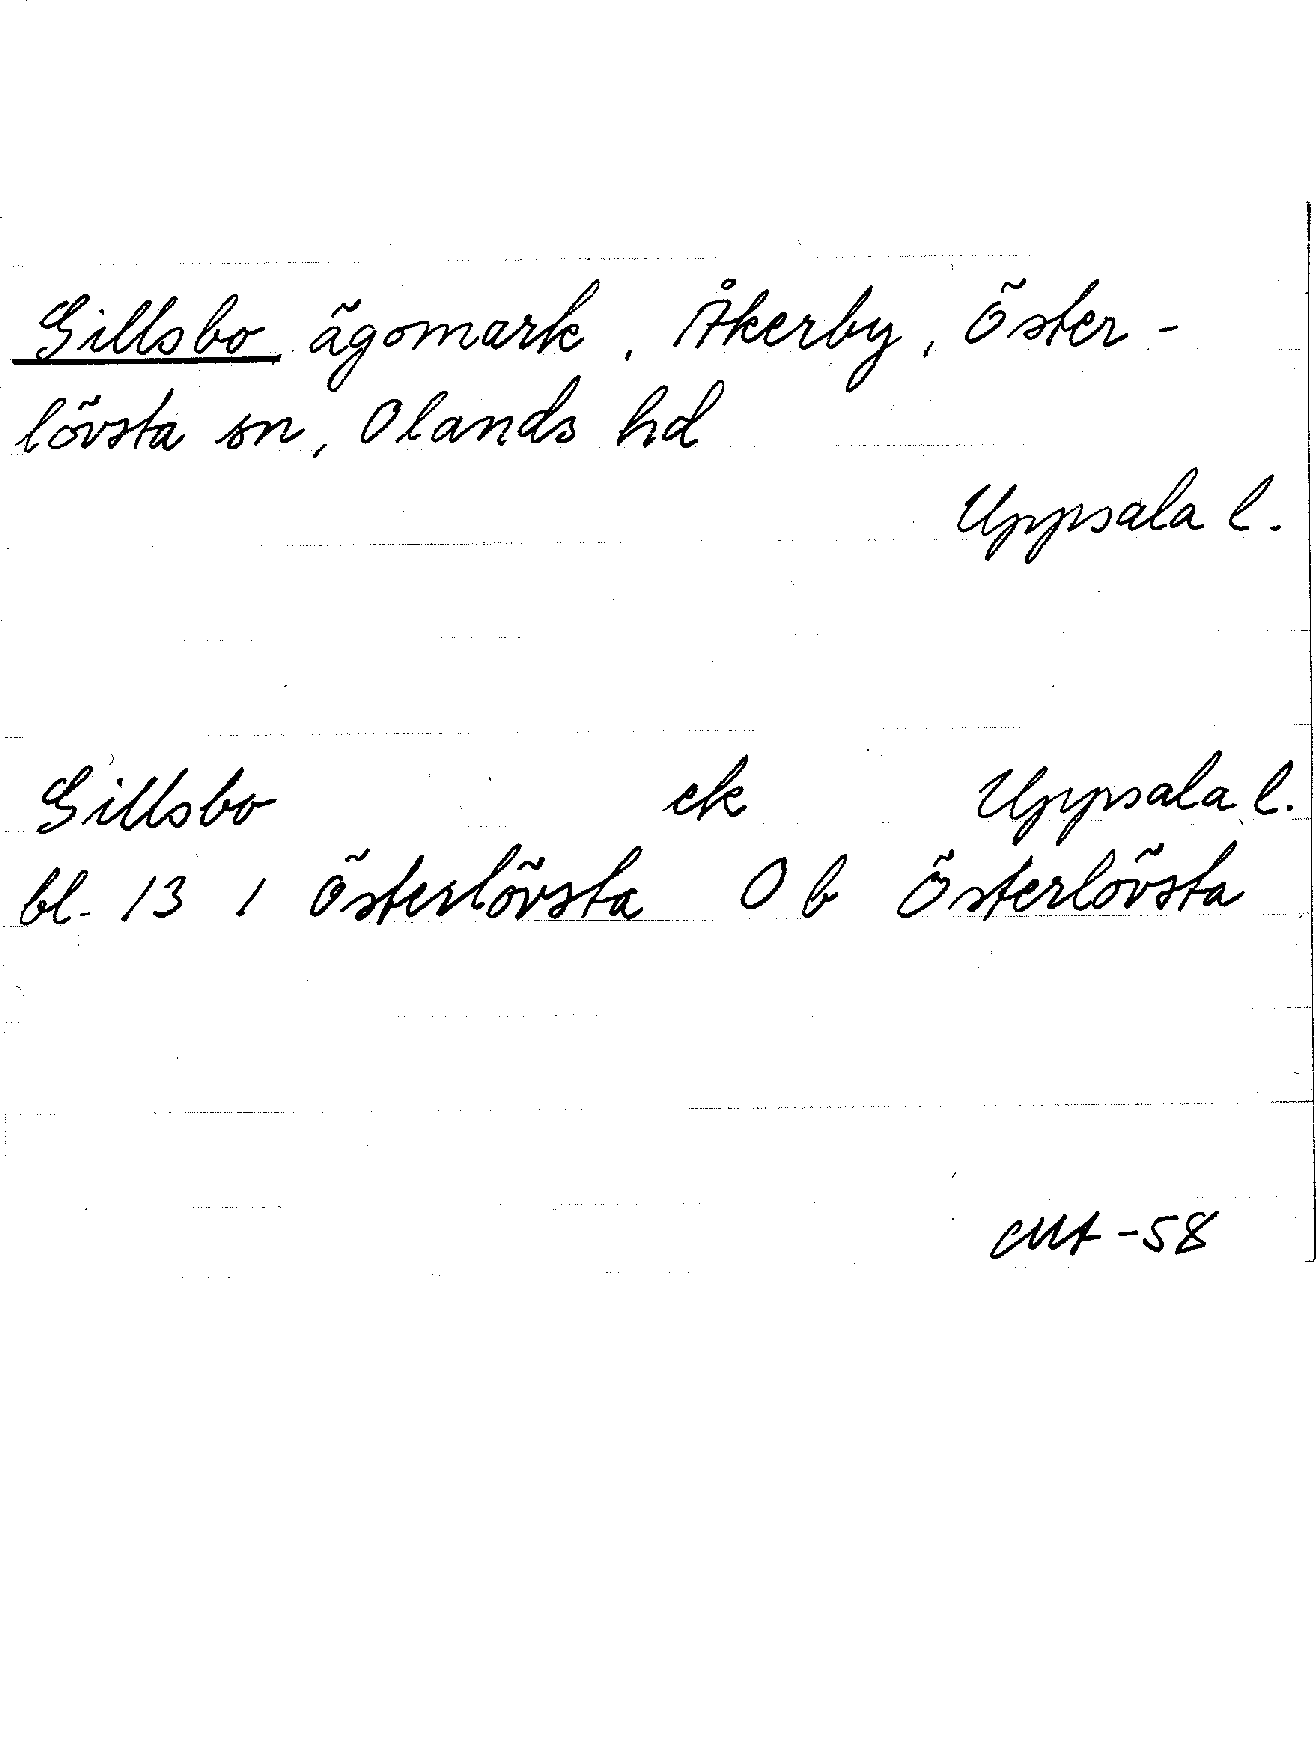 Gillsbo ägomark, Åkerby, Öster-
lövsta sn, Olands hd
Uppsala l.
Gillsbo ek Uppsala l.
bl. 13 1 Österlövsta O b Österlövsta
-58